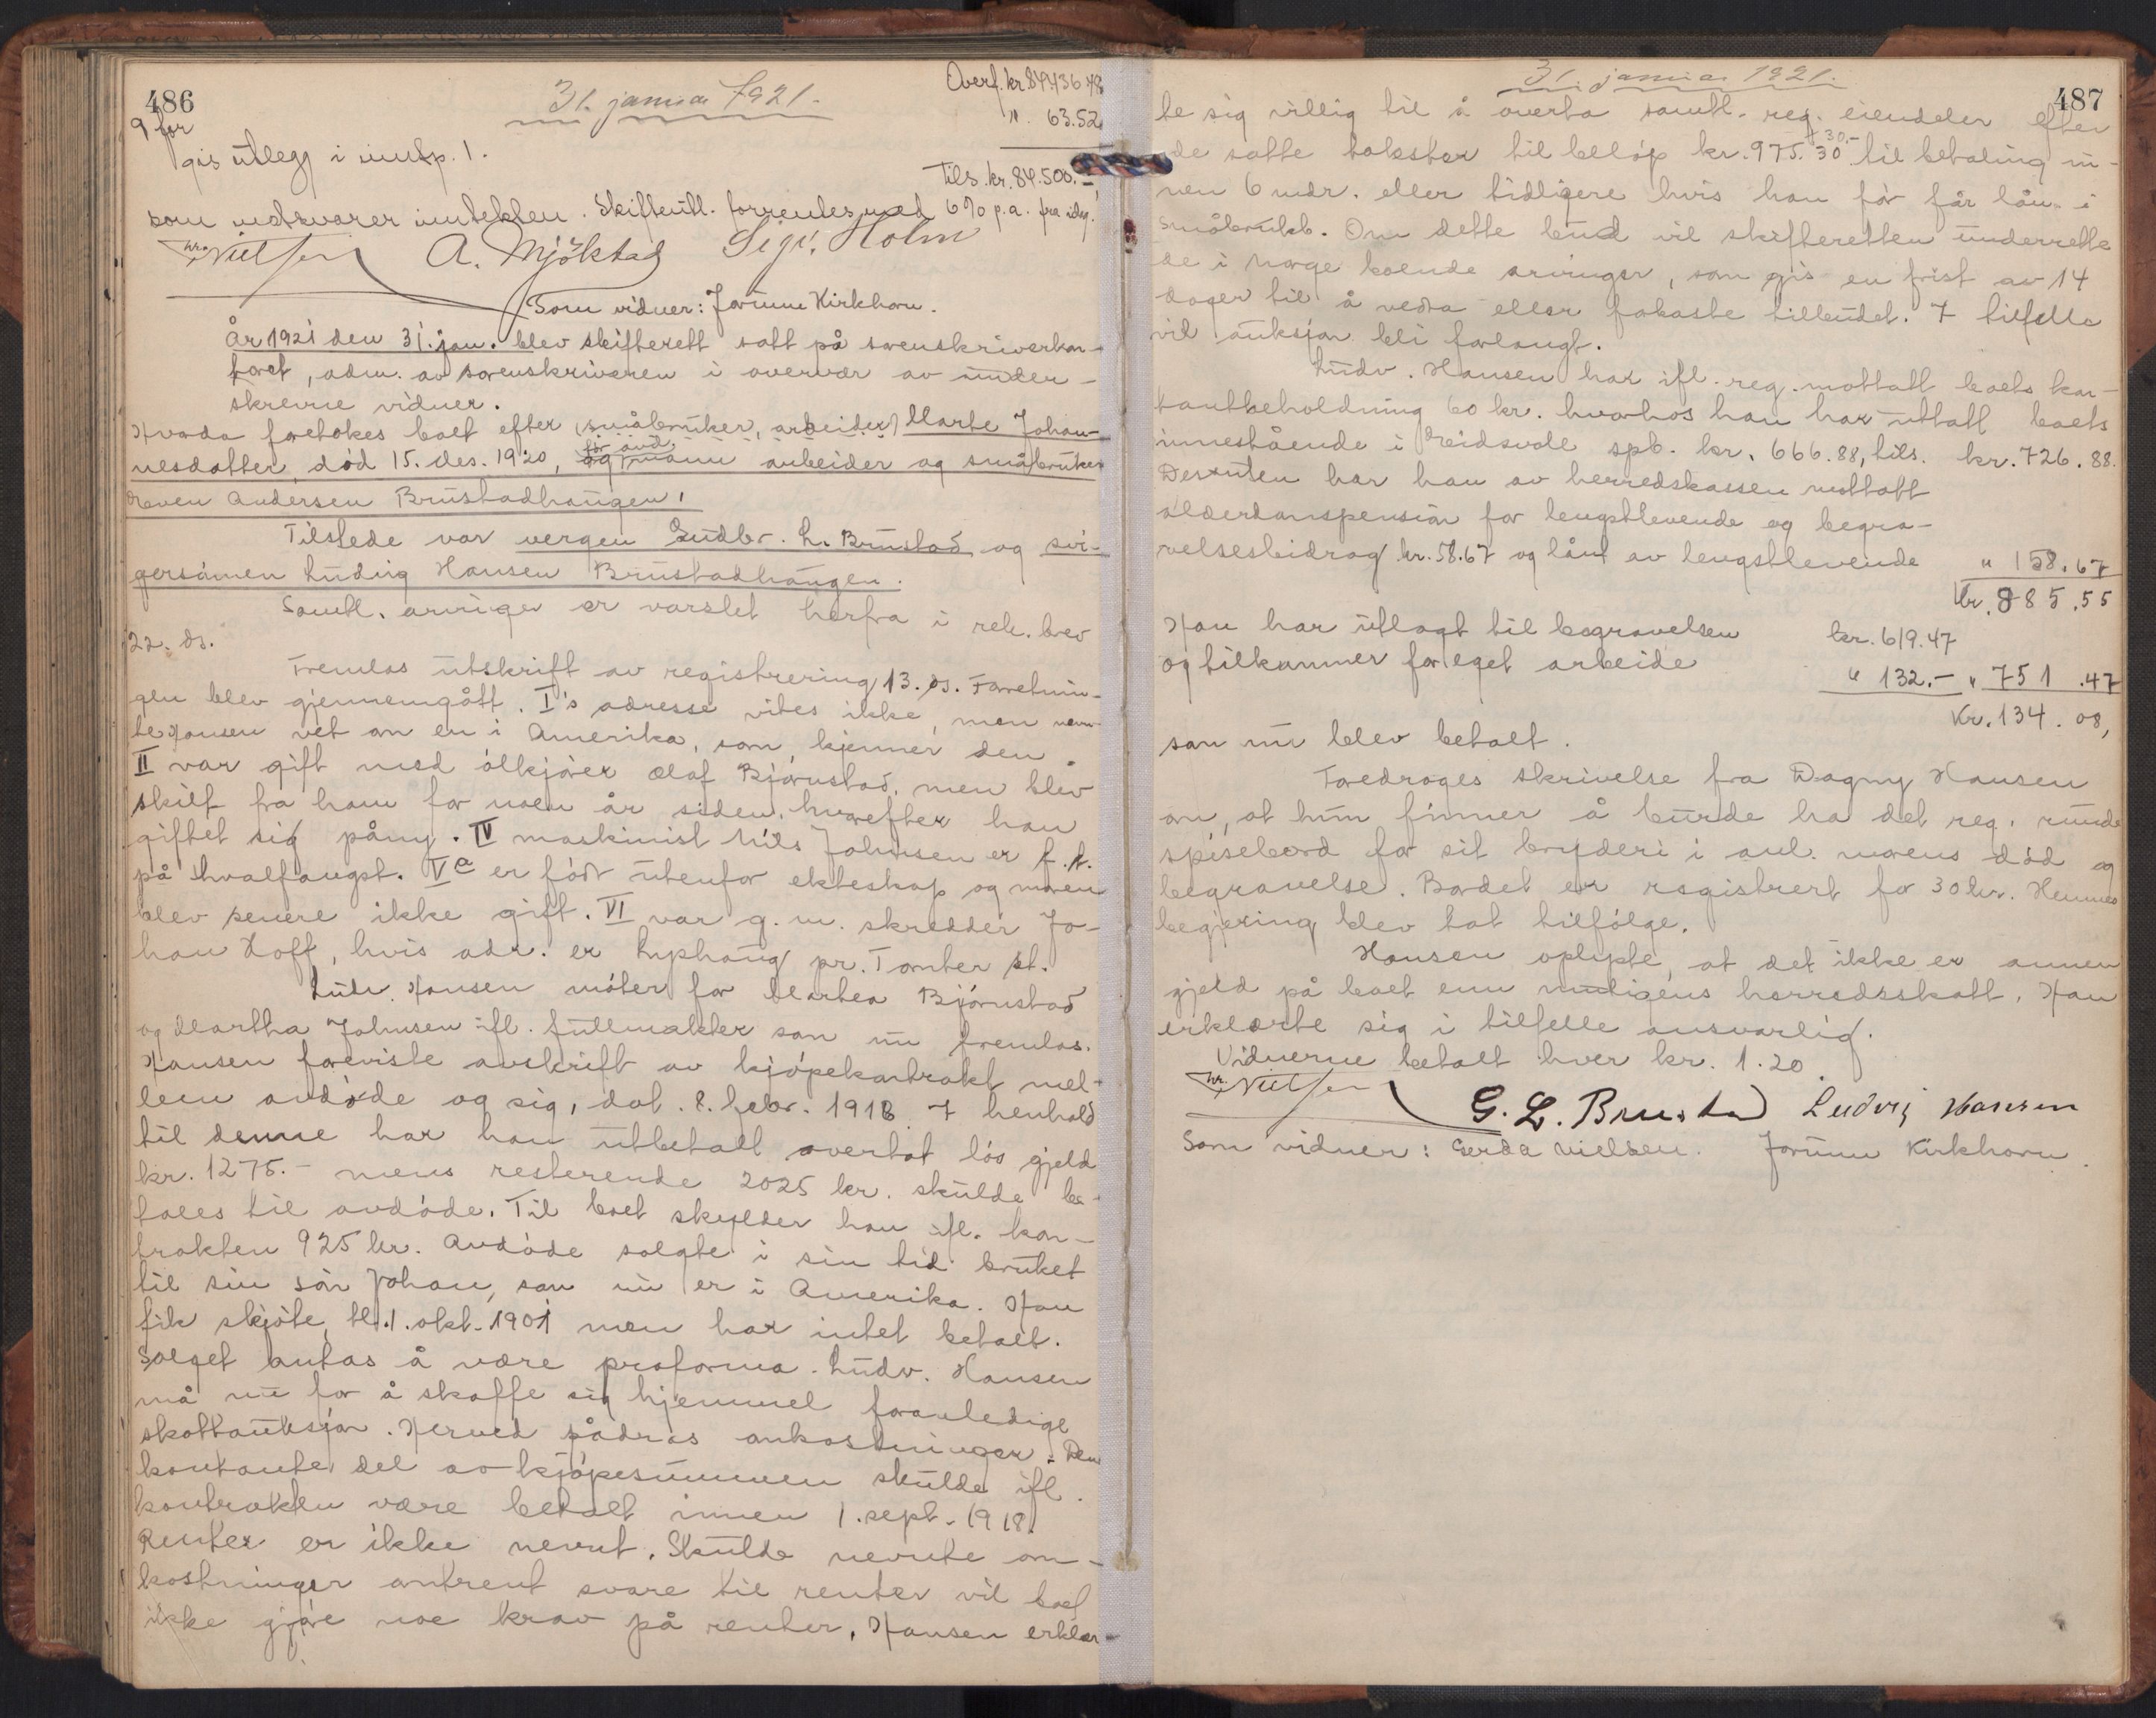 486
31. januar 1921.
Overf. kr. 84436.48
9 for
" 63.52
gis utlegg i innsp. 1.
Tils. kr. 84.500.-
som motsvarer inntekten. Skifteutl. forrentes med 6 % p.a. fra idag.
Nielsen A. Mjøkstad Sigv. Holm
Som vidner: Jorunn Kirkhorn.
År 1921 den 31. jan. blev skifterett satt på sorenskriverkon-
toret, adm. av sorenskriveren i overvær av under-
skrevne vidner.
Hvorda foretokes boet efter (småbruker, arbeider) Marte Johan-
nesdatter, død 15. des. 1920, og mann arbeider og småbruker
Even Andersen Brustadhaugen.
Tilstede var vergen Gudbr. L. Brustad og svi-
gersønnen Ludvig Hansen Brustadhaugen.
Samtl. arvinger er varslet herfra i rek. brev
22. ds.
Fremlas utskrift av registrering 13. ds. Forretnin-
gen blev gjennemgått. I's adresse vites ikke, men nevn-
te Hansen vet om en i Amerika, som kjenner den.
II var gift med ølkjører Olaf Bjørnstad, men blev
skilt fra ham for noen år siden, hvorefter han
giftet sig påny. IV maskinist Nils Johnsen er f.t.
på hvalfangst. Va er født utenfor ekteskap og moren
blev senere ikke gift. VI var g.m. skredder Jo-
han Hoff, hvis adr. er Lyshaug pr. Tomter st.
Ludv. Hansen møter for Martea Bjørnstad
og Martha Johnsen ifl. fullmakter som nu fremlas.
Hansen foreviste avskrift av kjøpekontrakt mel-
lem avdøde og sig, dat. 8. febr. 1918. I henhold
til denne har han utbetalt overtat løs gjeld
kr. 1275.- mens resterende 2025 kr. skulde be-
tales til avdøde. Til boet skylder han ifl. kon-
trakten 925 kr. Avdøde solgte i sin tid bruket
til sin søn Johan, som nu er i Amerika. Han
fik skjøte, tl. 1. okt. 1901 men har intet betalt.
Salget antas å være proforma. Ludv. Hansen
må nu for å skaffe sig hjemmel foranledige
skattauksjon. Herved pådras omkostninger. Den
kontante del av kjøpesummen skulde ifl.
kontrakten være betalt innen 1. sept. 1918.
Renter er ikke nevnt. Skulde nevnte om-
kostninger omtrent svare til renter vil boet
ikke gjøre noe krav på renter. Hansen erklær-
31. januar 1921.
487
te sig villig til å overta samtl. reg. eiendeler efter
de satte takster til beløp kr. 975.30 til betaling in-
nen 6 mdr. eller tidligere hvis han før får lån i
Småbrukb. Om dette bud vil skifteretten underrette
de i Norge boende arvinger, som gis en frist av 14
dager til å vedta eller forkaste tilbudet. I tilfelle
vil auksjon bli forlangt.
Ludv. Hansen har ifl. reg. mottatt boets kon-
tantbeholdning 60 kr. hvorhos han har uttatt boets
innestående i Eidsvoll spb. kr. 666.88, tils. kr. 726.88.
Desuten har han av herredskassen mottatt
alderdomspensjon for lengstlevende og begra-
velsesbidrag kr. 58.67 og lånt av lengstlevende " 158.67
Kr. 885.55
Han har utlagt til begravelsen kr. 619.47
og tilkommer for eget arbeide " 132.- " 751.47
Kr. 134.08,
som nu blev betalt.
Foredroges skrivelse fra Dagny Hansen
om, at hun finner å burde ha det reg. runde
spisebord for sit bryderi i anl. morens død og
begravelse. Bordet er registrert for 30 kr. Hennes
begjering blev tat tilfølge.
Hansen oplyste, at det ikke er annen
gjeld på boet enn muligens herredsskatt. Han
erklærte sig i tilfelle ansvarlig.
Vidnerne betalt hver kr. 1.20.
Nielsen G. L. Brustad Ludvig Hansen
Som vidner: Gerda Nielsen. Jorunn Kirkhorn.